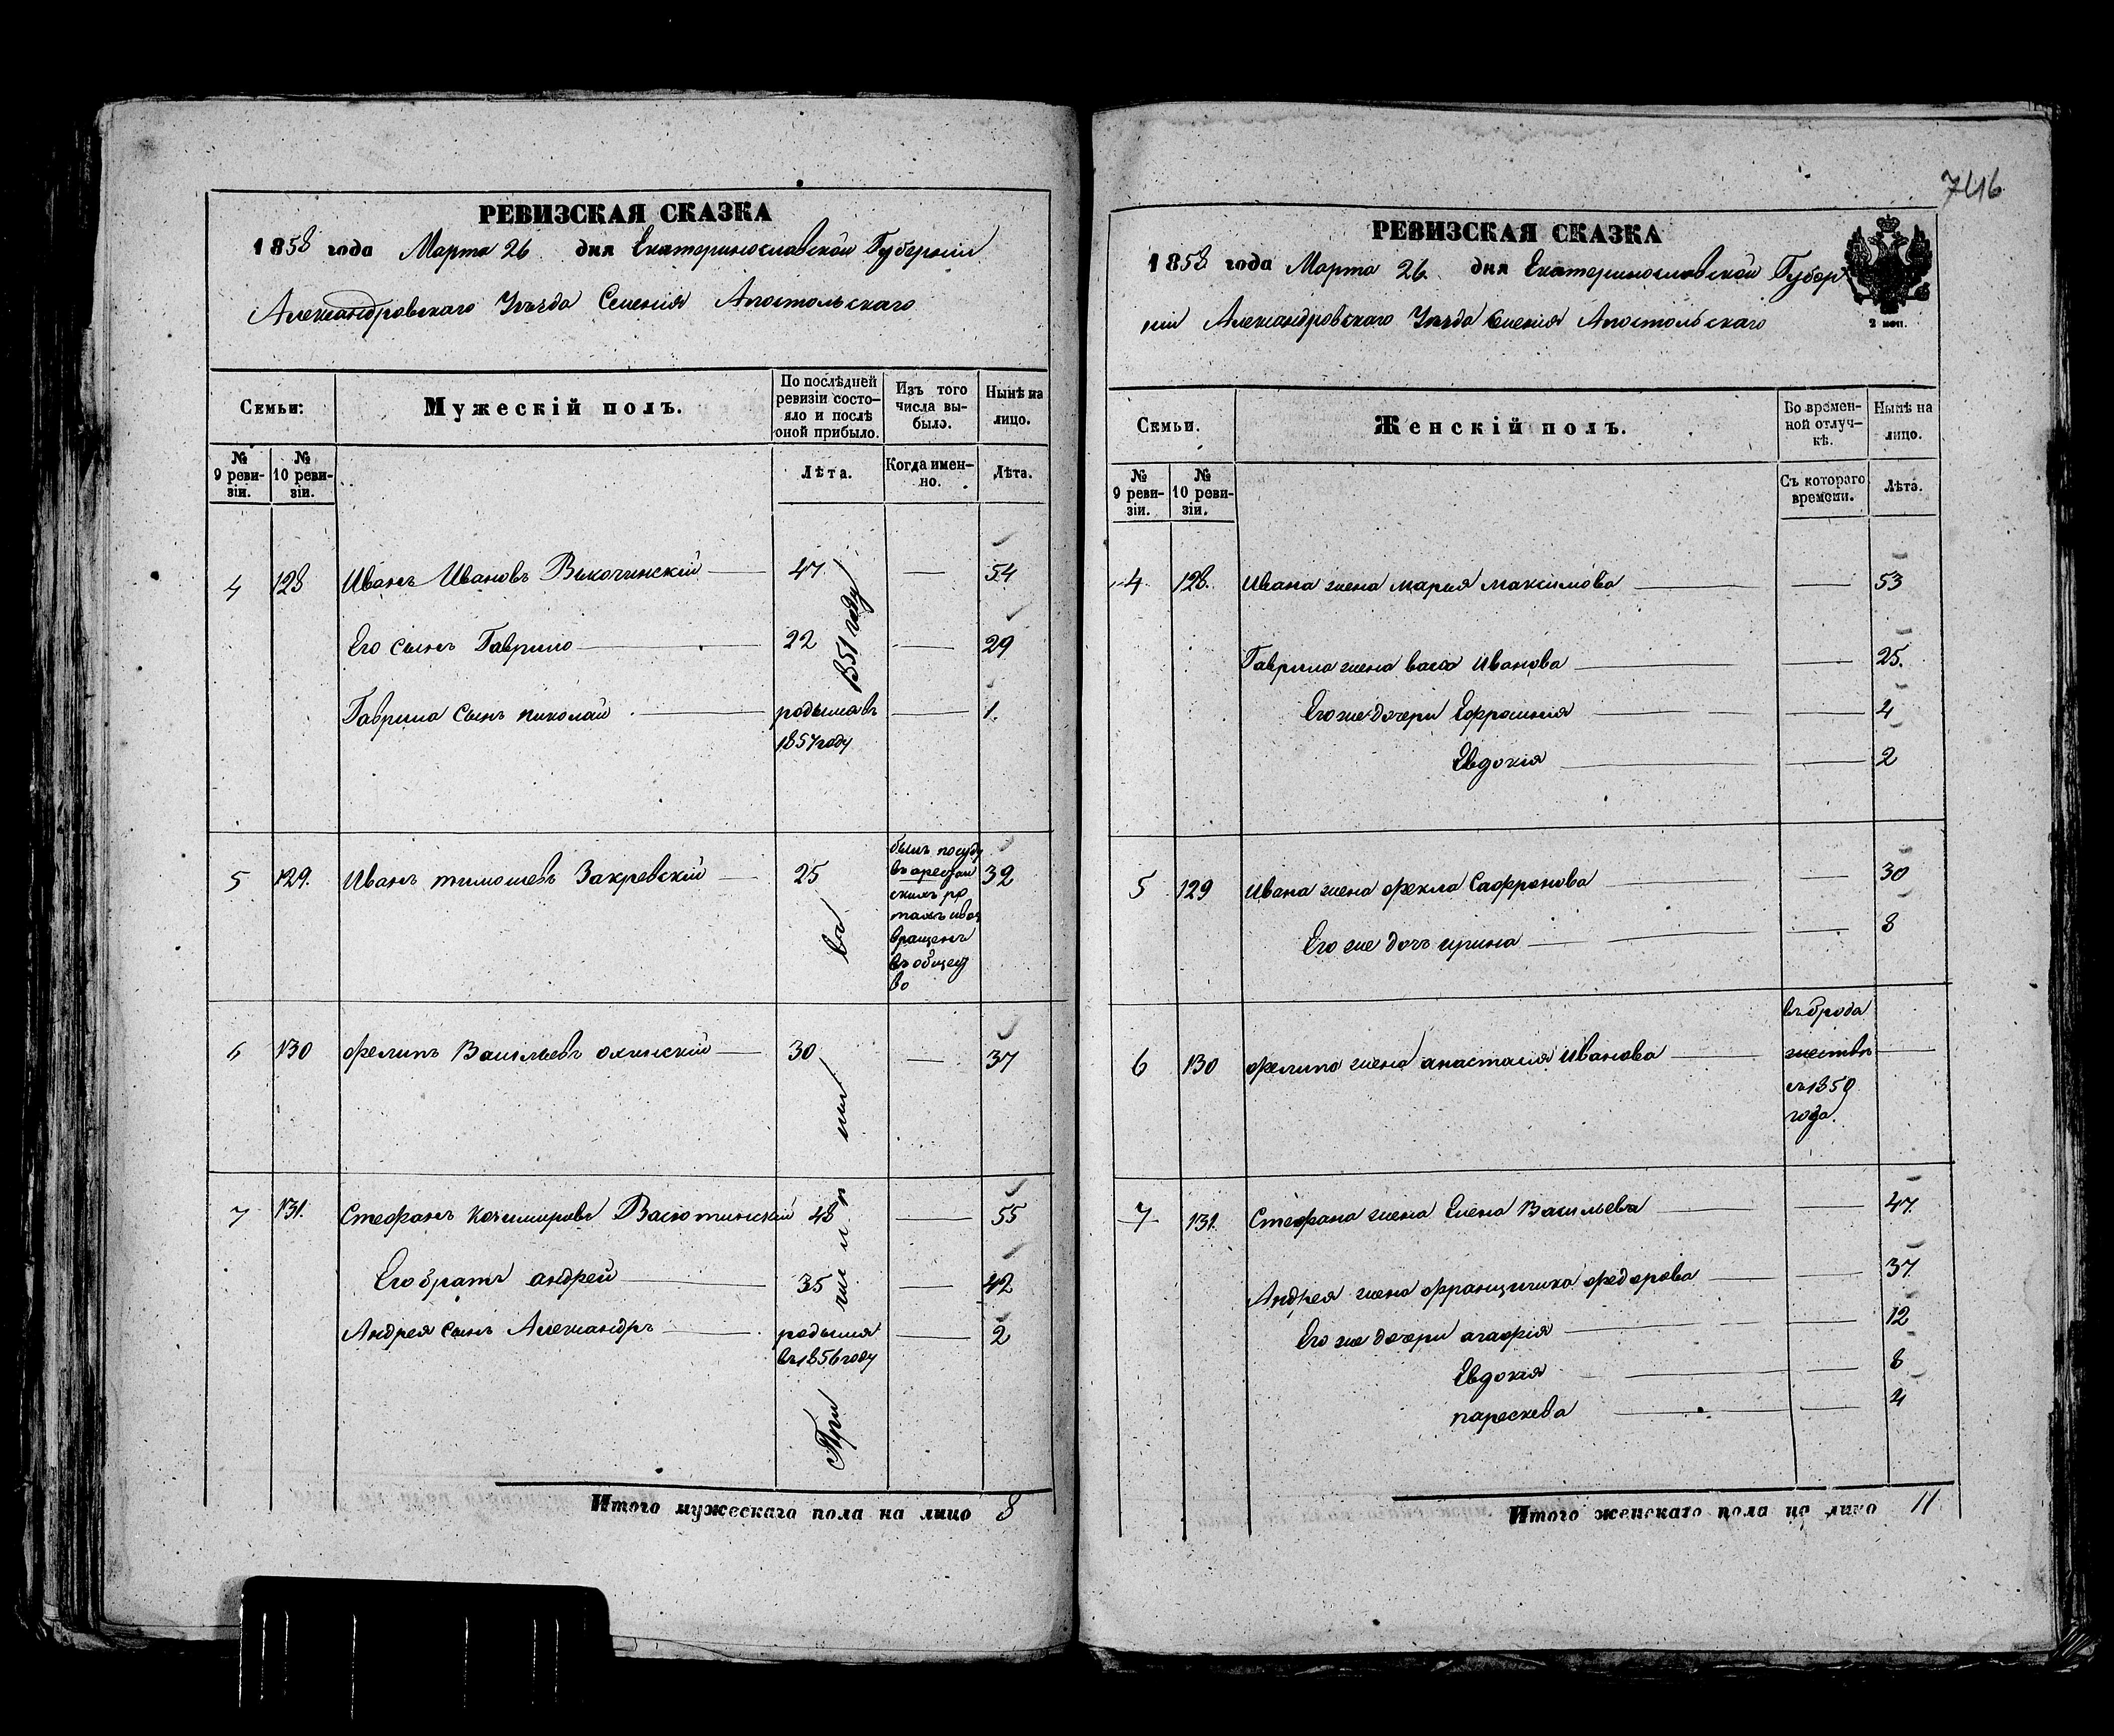 РЕВИЗСКАЯ СКАЗКА
1858 года Марта 26 дня Екатеринославской Губерніи
Александровскаго Уѣзда Селенія Апостольскаго
Семьи:
Мужескій полъ.
По послѣдней ревизіи состояло и послѣ оной прибыло.
Изъ того числа выбыло.
Нынѣ на лицо.
№ 9 ревизіи.
№ 10 ревизіи.
Лѣта.
Когда именно.
Лѣта.
4 128 Иванъ Ивановъ Выкочинскій 47 — 54
Его сынъ Гаврило 22 — 29
Гаврила сынъ николай родылся въ 1857 году — 1.
5 129. Иванъ тимошевъ Закревскій 25 32
былъ посуду
въ арестан
скихъ ро
тахъ ивоз
вращенъ
въ общест
во
6 130 филипъ Васильевъ охинскій 30 — 37
7 131. Стефанъ казимировъ Васютинскій 48 — 55
Его братъ андрей 35 — 42
Андрея сынъ Александръ родылся въ 1856 году — 2
При чи с ле ны В 51 году
Итого мужескаго пола на лицо 8
746
РЕВИЗСКАЯ СКАЗКА
1858 года Марта 26 дня Екатеринославской Губер
ніи Александровскаго Уѣзда Селенія Апостольскаго
2 коп.
Семьи.
Женскій полъ.
Во временной отлучкѣ.
Нынѣ на лицо.
№ 9 ревизіи.
№ 10 ревизіи.
Съ котораго времени.
Лѣта.
4 128. Ивана жена марья максимова — 53
Гаврила жена васа Иванова — 25.
Его же дочери Ефросинія — 4
Евдокія — 2
5 129 Ивана жена фекла Сафронова — 30
Его же дочь ирина — 8
6 130 филипа жена анастасія Иванова —
въ брода
жествѣ
съ 1850
года.
7 131. Стефана жена Елена Васильева — 47.
Андрея жена францишка федорова — 37.
Его же дочери агафія — 12
Евдокія — 8
параскева — 4
Итого женскаго пола на лицо 11